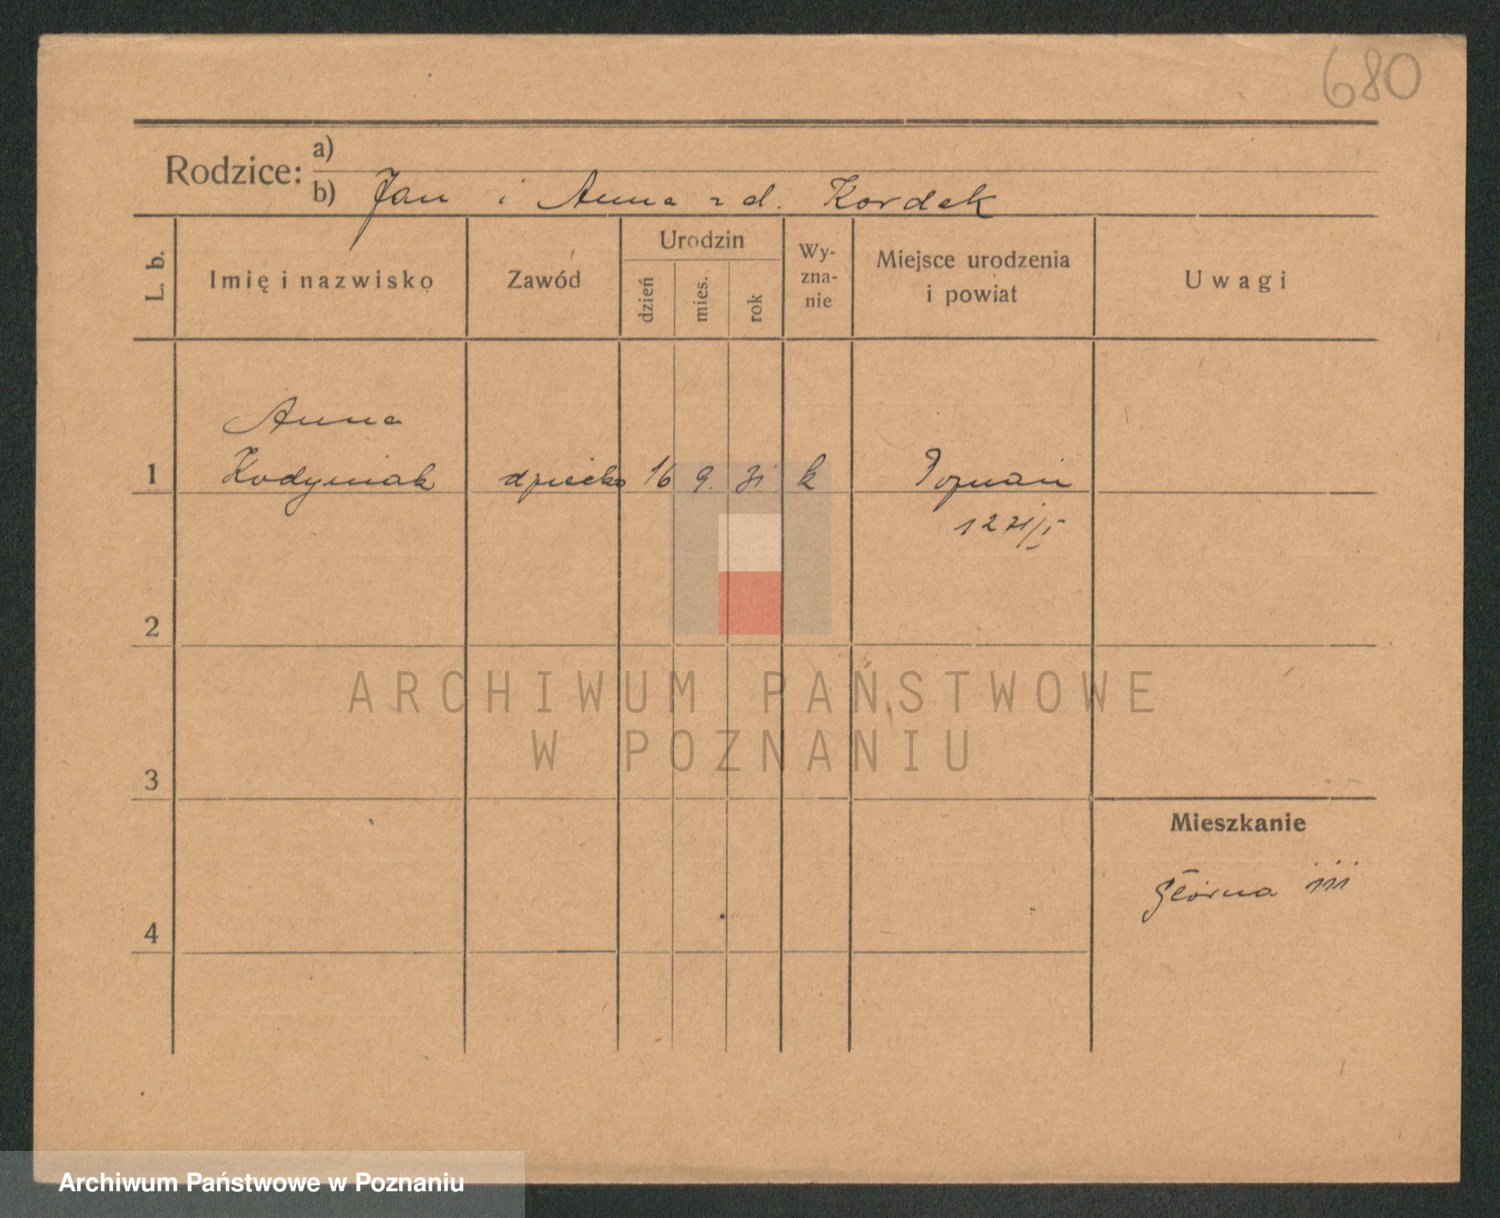 680
Rodzice: a)
b) Jan i Anna z d. Kordek
L. b.
Imię i nazwisko
Zawód
Urodzin
dzień
mies.
rok
Wy-
zna-
nie
Miejsce urodzenia
i powiat
Uwagi
Anna
1 Kodyniak dziecko 16 9. 31 k Poznań
2
3
4
Mieszkanie
Główna
ARCHIWUM PAŃSTWOWE
W POZNANIU
Archiwum Państwowe w Poznaniu